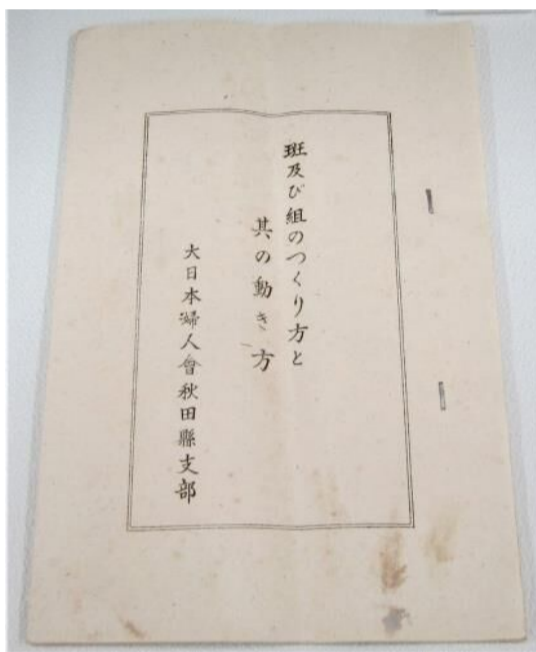 班及び組のつくり方と
其の動き方
大日本婦人會秋田縣支部